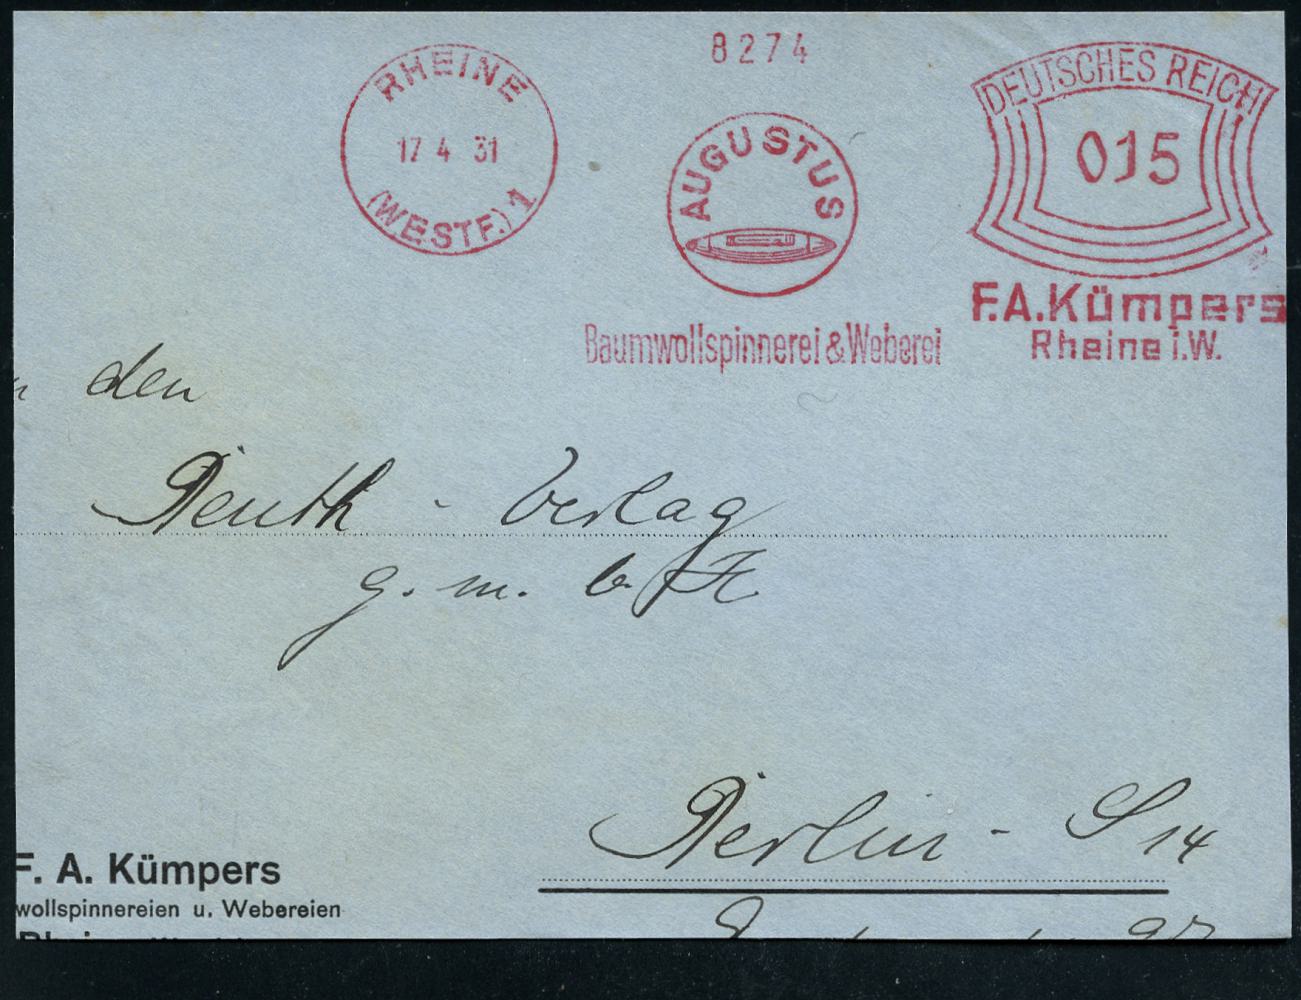 RHEINE
17 4 31
(WESTF.) 1
8274
AUGUSTUS
Baumwollspinnerei & Weberei
DEUTSCHES REICH
015
F.A. Kümpers
Rheine i.W.
n den
Beuth - Verlag
g. m. b. H
Berlin - S 14
F. A. Kümpers
wollspinnereien u. Webereien
97